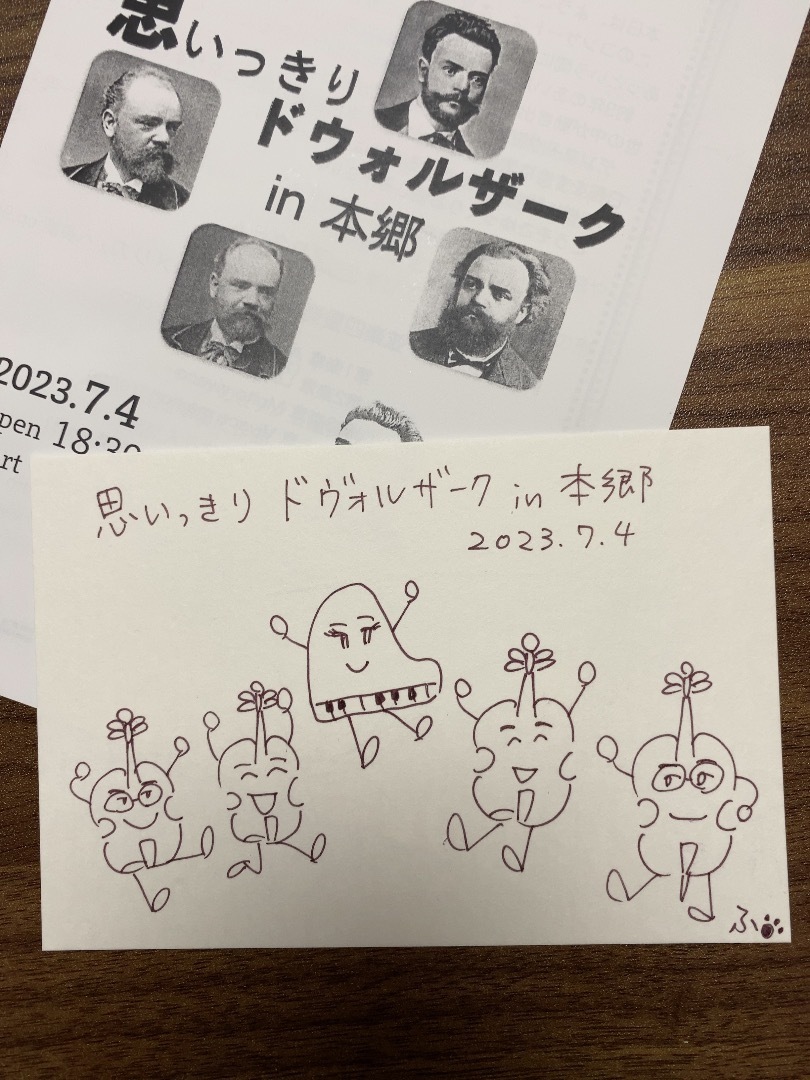 思いっきり
ドヴォルザーク
in 本郷
2023.7.4
思いっきり ドヴォルザーク in 本郷
2023.7.4
ふ